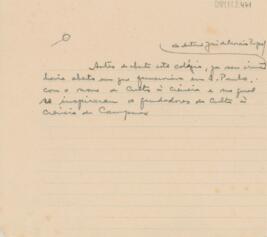 (do detino José de Morais Papel)
Antes de aberto este colégio, ja seu irmão
havia aberto um que funcionava em S. Paulo,
com o nome de Culto à Ciência e no qual
se inspiraram os fundadores do Culto à
Ciência de Campinas